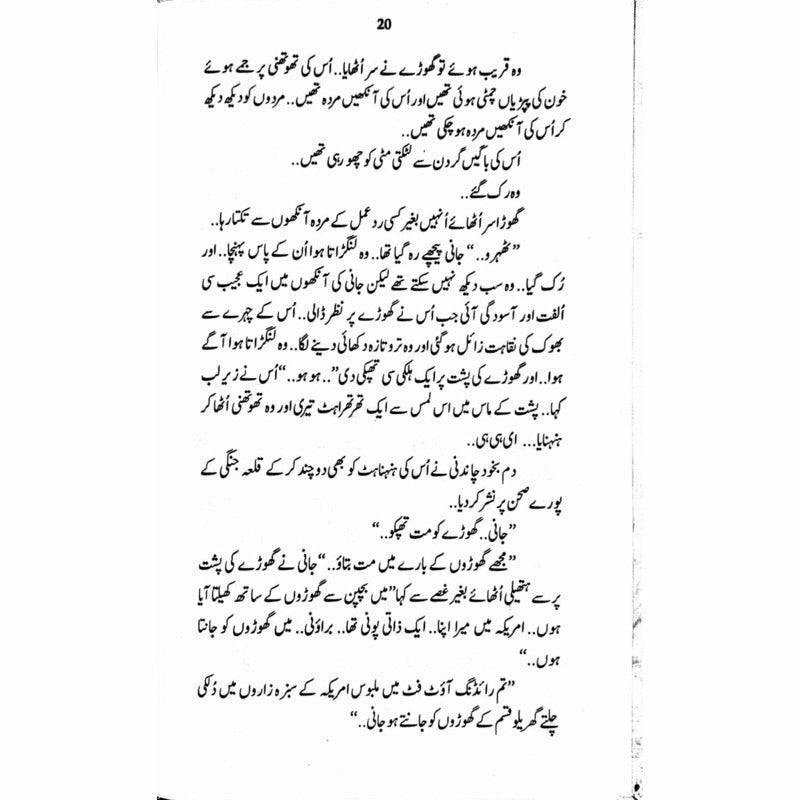 20
وہ قریب ہوئے تو گھوڑے نے سر اُٹھایا.. اُس کی تھوتھنی پر جمے ہوئے
خون کی پپڑیاں چمٹی ہوئی تھیں اور اُس کی آنکھیں مردہ تھیں.. مردوں کو دیکھ دیکھ
کر اُس کی آنکھیں مردہ ہو چکی تھیں..
اُس کی باگیں گردن سے لٹکتی مٹی کو چھو رہی تھیں..
وہ رک گئے..
گھوڑا سر اُٹھائے اُنہیں بغیر کسی ردِ عمل کے مردہ آنکھوں سے تکتا رہا..
”ٹھہرو..“ جانی پیچھے رہ گیا تھا.. وہ لنگڑاتا ہوا اُن کے پاس پہنچا.. اور
رُک گیا.. وہ سب دیکھ نہیں سکتے تھے لیکن جانی کی آنکھوں میں ایک عجیب سی
اُلفت اور آسودگی آئی جب اُس نے گھوڑے پر نظر ڈالی.. اُس کے چہرے سے
بھوک کی نقاہت زائل ہو گئی اور وہ تروتازہ دکھائی دینے لگا.. وہ لنگڑاتا ہوا آگے
ہوا.. اور گھوڑے کی پشت پر ایک ہلکی سی تھپکی دی”.. ہو ہو..“ اُس نے زیر لب
کہا.. پشت کے ماس میں اس لمس سے ایک تھرتھراہٹ تیری اور وہ تھوتھنی اُٹھا کر
ہنہنایا... ای ہی ہی..
دم بخود چاندنی نے اُس کی ہنہناہٹ کو بھی دو چند کر کے قلعہ جنگی کے
پورے صحن پر نشر کر دیا..
”جانی.. گھوڑے کو مت تھپکو..“
”مجھے گھوڑوں کے بارے میں مت بتاؤ..“ جانی نے گھوڑے کی پشت
پر سے ہتھیلی اُٹھائے بغیر غصے سے کہا”میں بچپن سے گھوڑوں کے ساتھ کھیلتا آیا
ہوں.. امریکہ میں میرا اپنا.. ایک ذاتی پونی تھا.. براؤنی.. میں گھوڑوں کو جانتا
ہوں..“
”تم رائڈنگ آؤٹ فٹ میں ملبوس امریکہ کے سبزہ زاروں میں دُلکی
چلتے گھریلو قسم کے گھوڑوں کو جانتے ہو جانی..“